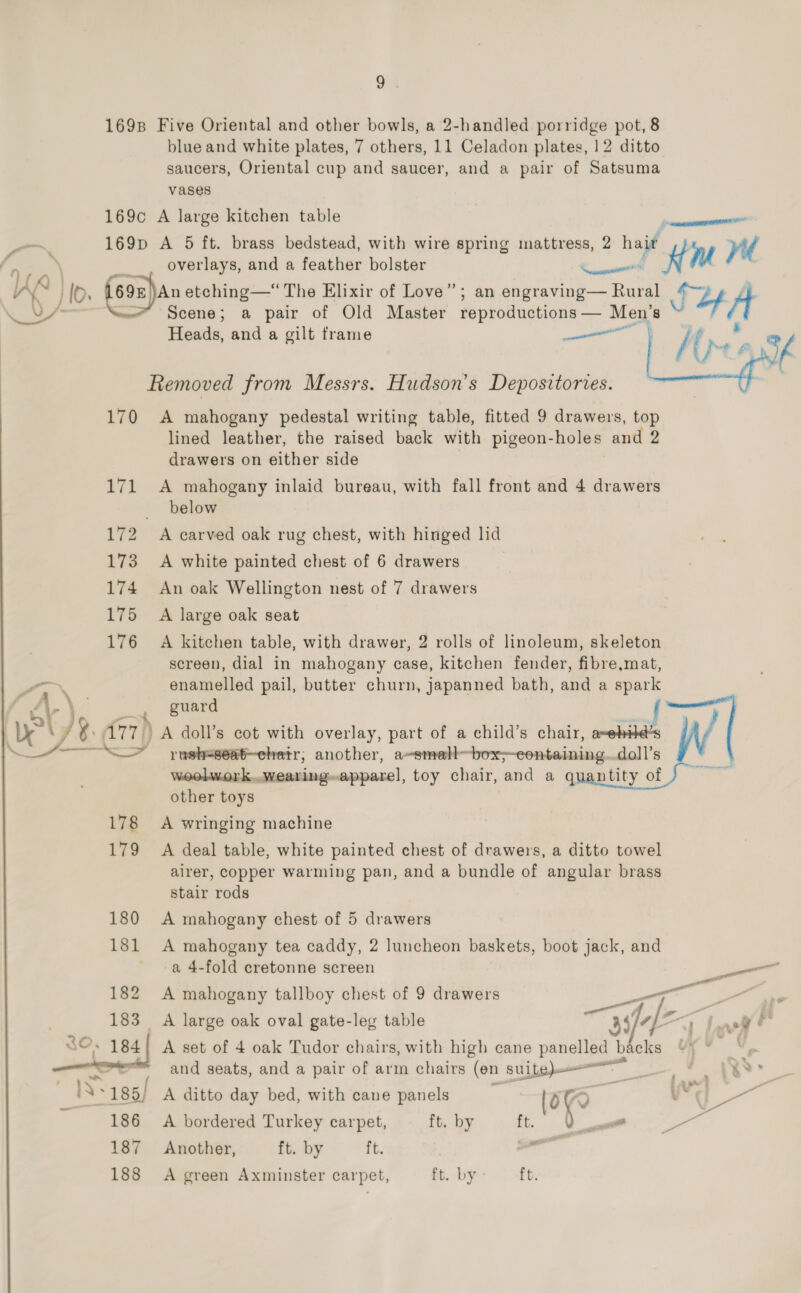 9
169B Five Oriental and other bowls, a 2-handled porridge pot, 8
blue and white plates, 7 others, 11 Celadon plates, 12 ditto
saucers, Oriental cup and saucer, and a pair of Satsuma
vases
169C A large kitchen table
169D A 5 ft. brass bedstead, with wire spring mattress, 2 hair
overlays, and a feather bolster
169E An etching—“The Elixir of Love”; an engraving—Rural
Scene; a pair of Old Master reproductions—Men's
Heads, and a gilt frame
Removed from Messrs. Hudson's Depositories.
170 A mahogany pedestal writing table, fitted 9 drawers, top
lined leather, the raised back with pigeon-holes and 2
drawers on either side
171 A mahogany inlaid bureau, with fall front and 4 drawers
below
172 A carved oak rug chest, with hinged lid
173 A white painted chest of 6 drawers
174 An oak Wellington nest of 7 drawers
175 A large oak seat
176 A kitchen table, with drawer, 2 rolls of linoleum, skeleton
screen, dial in mahogany case, kitchen fender, fibre mat,
enamelled pail, butter churn, japanned bath, and a spark
guard
177 A doll's cot with overlay, part of a child's chair, a child's
rush-seat chair, another, a small box, containing doll's
woolwork wearing apparel, toy chair, and a quantity of
other toys
178 A wringing machine
179 A deal table, white painted chest of drawers, a ditto towel
airer, copper warming pan, and a bundle of angular brass
stair rods
180 A mahogany chest of 5 drawers
181 A mahogany tea caddy, 2 luncheon baskets, boot jack, and
a 4-fold cretonne screen
182 A mahogany tallboy chest of 9 drawers
183 A large oak oval gate-leg table
30. 184 A set of 4 oak Tudor chairs, with high cane panelled backs
and seats, and a pair of arm chairs (en suite)
185 A ditto day bed, with cane panels
186 A bordered Turkey carpet, ft. by ft.
187 Another, ft. by ft.
188 A green Axminster carpet, ft. by ft.